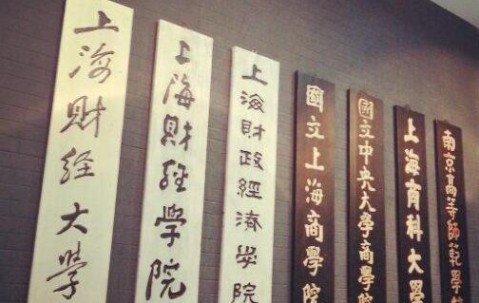 上海財经大學
上海財經學院
上海財政經濟學院
國立上海商學院
國立中央大學商學院
上海商科大學
南京高等師範學